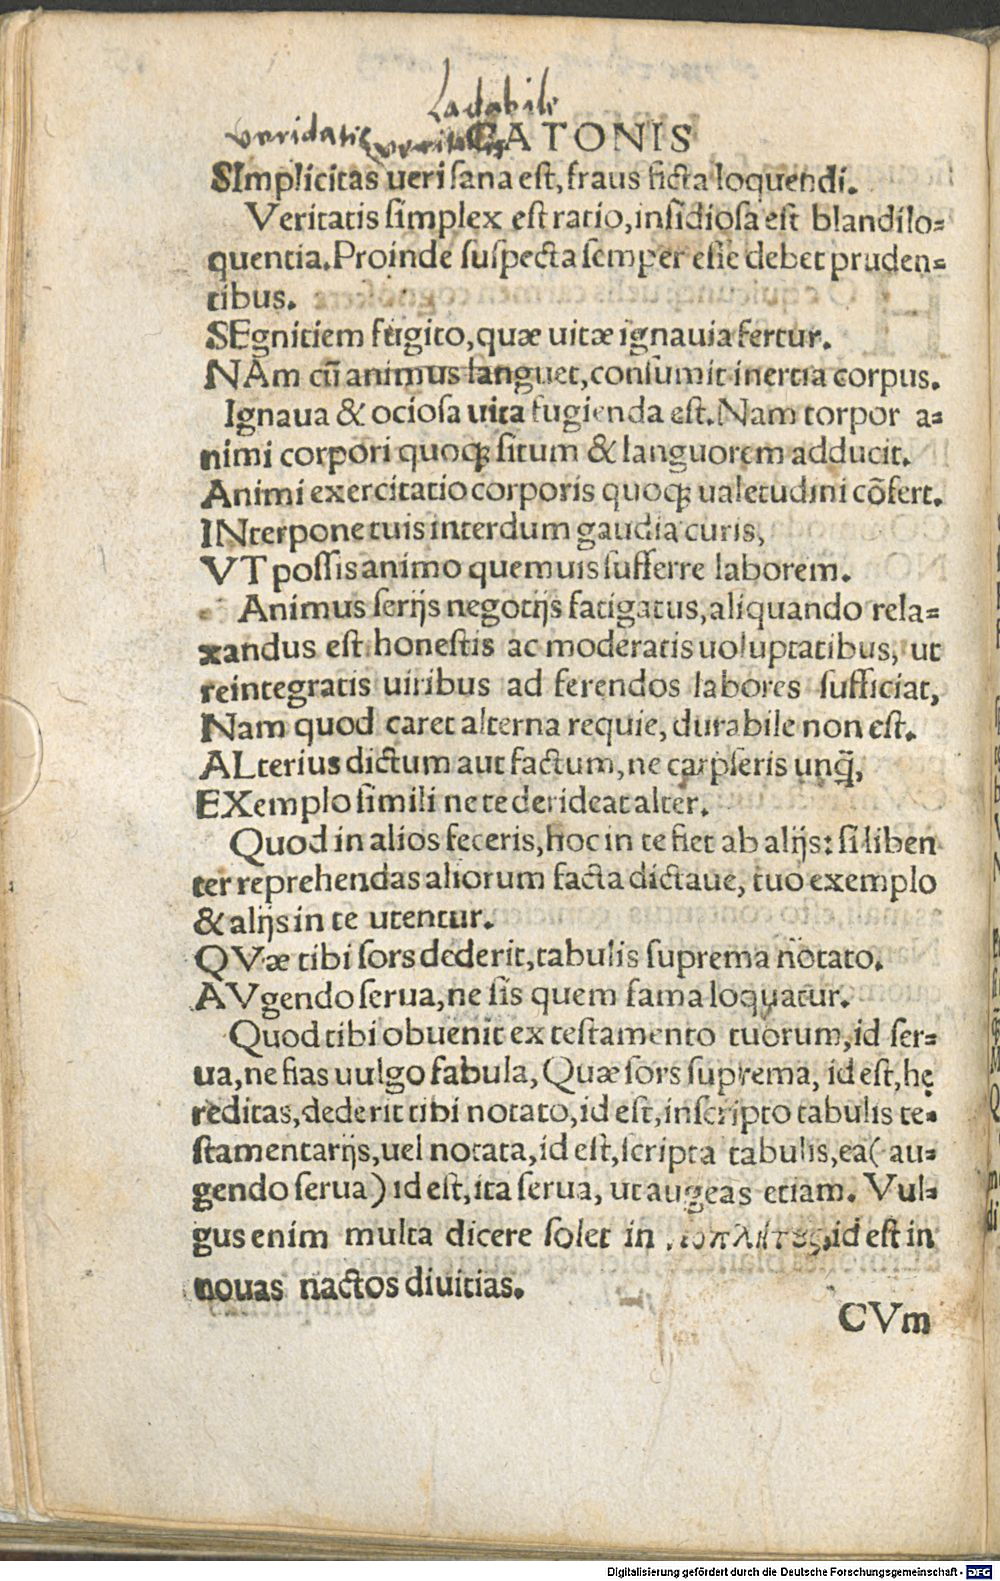 Ladabile
veridatis veritatis CATONIS
SImplicitas ueri sana est, fraus ficta loquendi.
Veritatis simplex est ratio, insidiosa est blandilo=
quentia. Proinde suspecta semper esse debet pruden=
tibus.
SEgnitiem fugito, quæ uitæ ignauia fertur.
NAm cũ animus languet, consumit inertia corpus.
Ignaua & ociosa uita fugienda est. Nam torpor a=
nimi corpori quoqꝫ situm & languorem adducit.
Animi exercitatio corporis quoqꝫ ualetudini cõfert.
INterpone tuis interdum gaudia curis,
VT possis animo quemuis sufferre laborem.
Animus serijs negotijs fatigatus, aliquando rela=
xandus est honestis ac moderatis uoluptatibus, ut
reintegratis uiribus ad ferendos labores sufficiat,
Nam quod caret alterna requie, durabile non est.
ALterius dictum aut factum, ne carpseris unq̃,
EXemplo simili ne te derideat alter.
Quod in alios feceris, hoc in te fiet ab alijs: si liben
ter reprehendas aliorum facta dictaue, tuo exemplo
& alijs in te utentur.
QVæ tibi sors dederit, tabulis suprema notato.
AVgendo serua, ne sis quem fama loquatur.
Quod tibi obuenit ex testamento tuorum, id ser=
ua, ne fias uulgo fabula, Quæ sors suprema, id est, hę
reditas, dederit tibi notato, id est, inscripto tabulis te=
stamentarijs, uel notata, id est, scripta tabulis, ea( au=
gendo serua) id est, ita serua, ut augeas etiam. Vul=
gus enim multa dicere solet in id est in
nouas nactos diuitias.
CVm
Digitalisierung gefördert durch die Deutsche Forschungsgemeinschaft - DFG